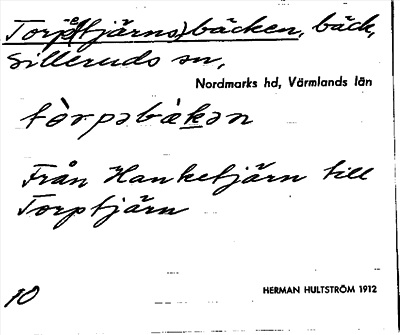 Torp-(e)(tjärns)bäcken, bäck,
Silleruds sn,
Nordmarks hd, Värmlands län
tòrpəbàkən
Från Hanketjärn till
Torptjärn
10
HERMAN HULTSTRÖM 1912